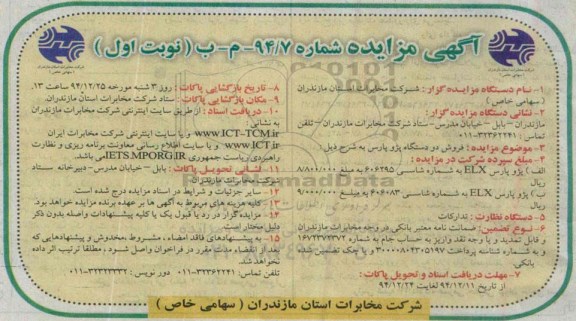 آگهی مزایده شماره ۹۴/۷- م-ب ( نوبت اول )
۱- نام دستگاه مزایده گزار : شرکت مخابرات استان مازندران
( سهامی خاص )
۲- نشانی دستگاه مزایده گزار :
مازندران – بابل – خیابان مدرس-ستاد شرکت مخابرات مازندران – تلفن
تماس : ۳۲۳۶۲۲۴۱-۰۱۱
۳- موضوع مزایده : فروش دو دستگاه پژو پارس به شرح ذیل :
۴- مبلغ سپرده شرکت در مزایده :
الف ) پژو پارس ELX به شماره شاسی ۶۰۶۲۹۵ به مبلغ ۸/۸۰۰/۰۰۰
ریال
ب ) پژو پارس ELX به شماره شاسی ۶۰۶۰۸۳ به مبلغ ۹/۰۰۰/۰۰۰
ریال
۵- دستگاه نظارت : تدارکات
۶- نوع تضمین: ضمانت نامه معتبر بانکی در وجه مخابرات مازندران
و قابل تمدید و یا وجه نقد واریز به حساب جام به شماره
و به شماره شناسه پرداخت و یا چک تضمین شده
بانکی.
۷- مهلت دریافت اسناد و تحویل پاکات :
از تاریخ ۹۴/۱۲/۱۱ لغایت ۹۴/۱۲/۲۴
۸- تاریخ بازگشایی پاکات : روز ۳ شنبه مورخه ۹۴/۱۲/۲۵ ساعت ۱۳.
۹- مکان بازگشایی پاکات : ستاد شرکت مخابرات استان مازندران.
۱۰- دریافت اسناد : از طریق سایت اینترنتی شرکت مخابرات مازندران
به نشانی :
www.ICT-TCM.ir و یا سایت اینترنتی شرکت مخابرات ایران
www.ICT.ir و یا سایت اطلاع رسانی معاونت برنامه ریزی و نظارت
راهبردی ریاست جمهوری IETS.MPORG.IR می باشد.
۱۱- نشانی تحویل پاکات : بابل – خیابان مدرس-دبیرخانه ستاد
شرکت مخابرات مازندران
۱۲- سایر جزئیات و شرایط در اسناد مزایده درج شده است.
۱۳- کلیه هزینه های مربوط به آگهی ها بر عهده برنده مزایده خواهد بود.
۱۴- مزایده گزار در رد یا قبول یک یا کلیه پیشنهادات واصله بدون ذکر
دلیل مختار است.
۱۵- به پیشنهادهای فاقد امضاء ، مشروط ،مخدوش و پیشنهادهایی که
بعد از انقضاء مدت مقرر در فراخوان واصل شود ، مطلقا ترتیب اثر داده
نخواهد شد.
تلفن تماس: ۳۲۳۶۲۲۴۱-۰۱۱ دور نویس : ۳۲۳۲۳۳۳۲-۰۱۱
شرکت مخابرات استان مازندران ( سهامی خاص )